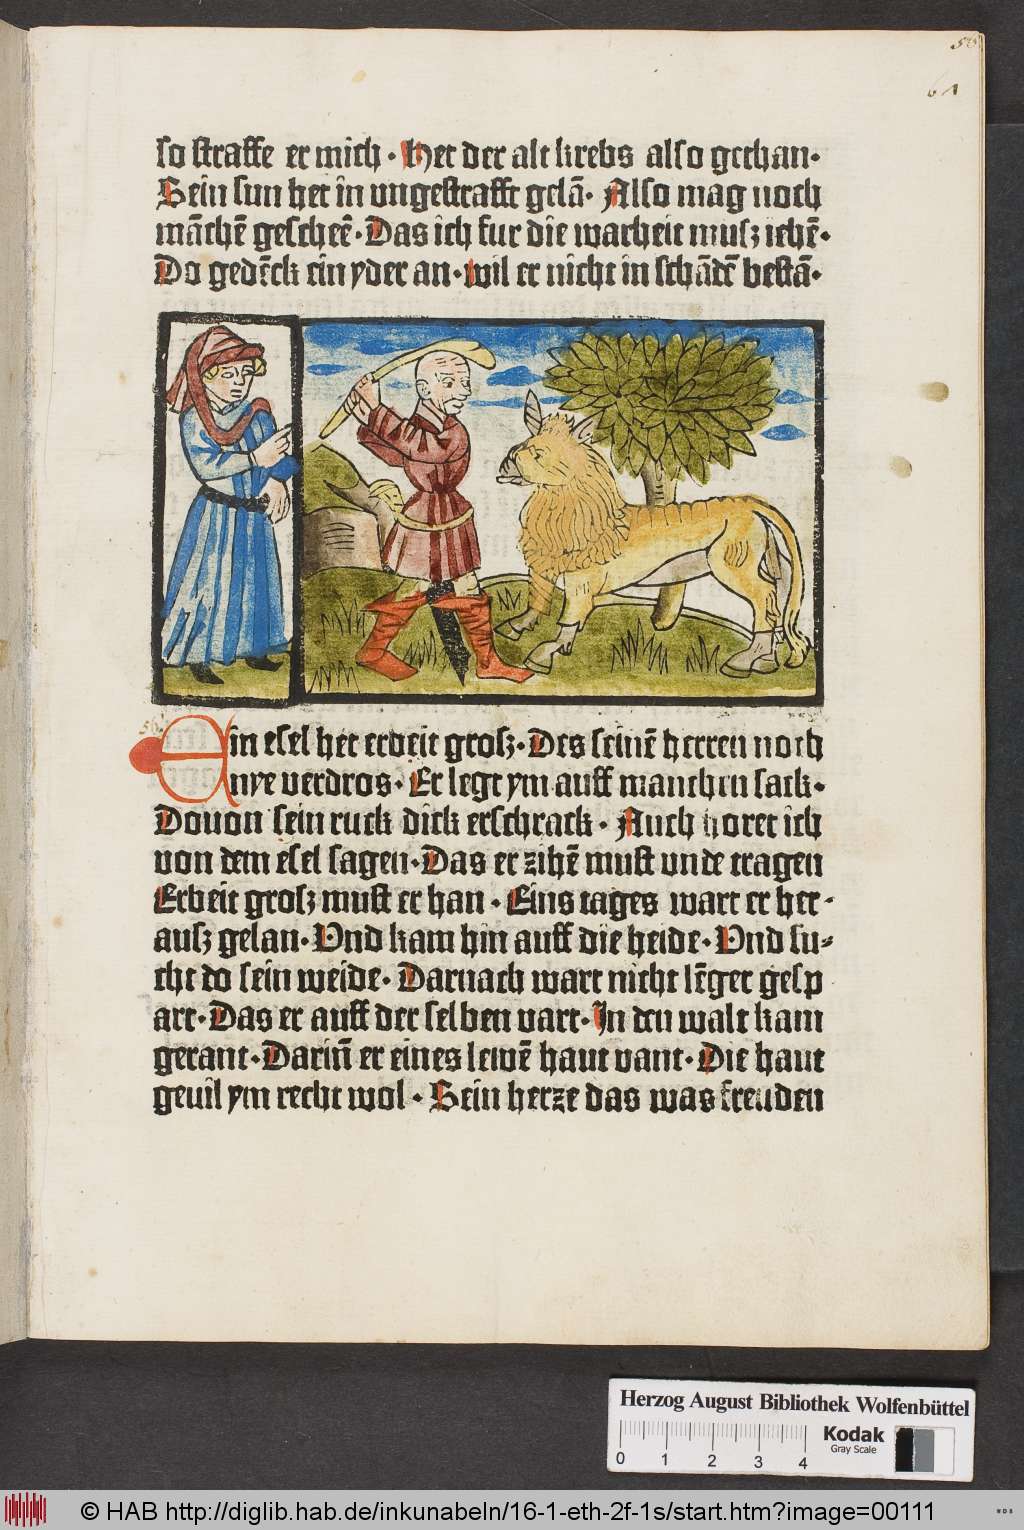 58
61
so straffe er mich · Het der alt krebs also gethan·
Sein sun het in ungestrafft gelā· Also mag noch
māchē gescheē· Das ich fur die warheit musz iehē·
Do gedēck ein yder an· wil er nicht in schādē bestā·
Ein esel het erbeit grosz· Des seinē herren noch
nye verdros· Er legt ym auff manchen sack·
Dovon sein ruck dick erschrack· Auch horet ich
von dem esel sagen· Das er zihē must unde tragen
Erbeit grosz must er han · Eins tages wart er her·
ausz gelan· Und kam hin auff die heide· Und su⸗
cht do sein weide· Darnach wart nicht lēger gesp
art· Das er auff der selben vart· In den walt kam
gerant· Darin̄ er eines lewē haut vant· Die haut
gevil ym recht wol· Sein herze das was freuden
Herzog August Bibliothek Wolfenbüttel
0 1 2 3 4
Kodak
Gray Scale
© HAB http://diglib.hab.de/inkunabeln/16-1-eth-2f-1s/start.htm?image=00111